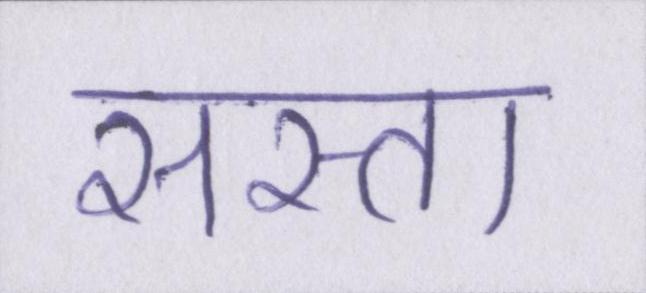 सस्ता